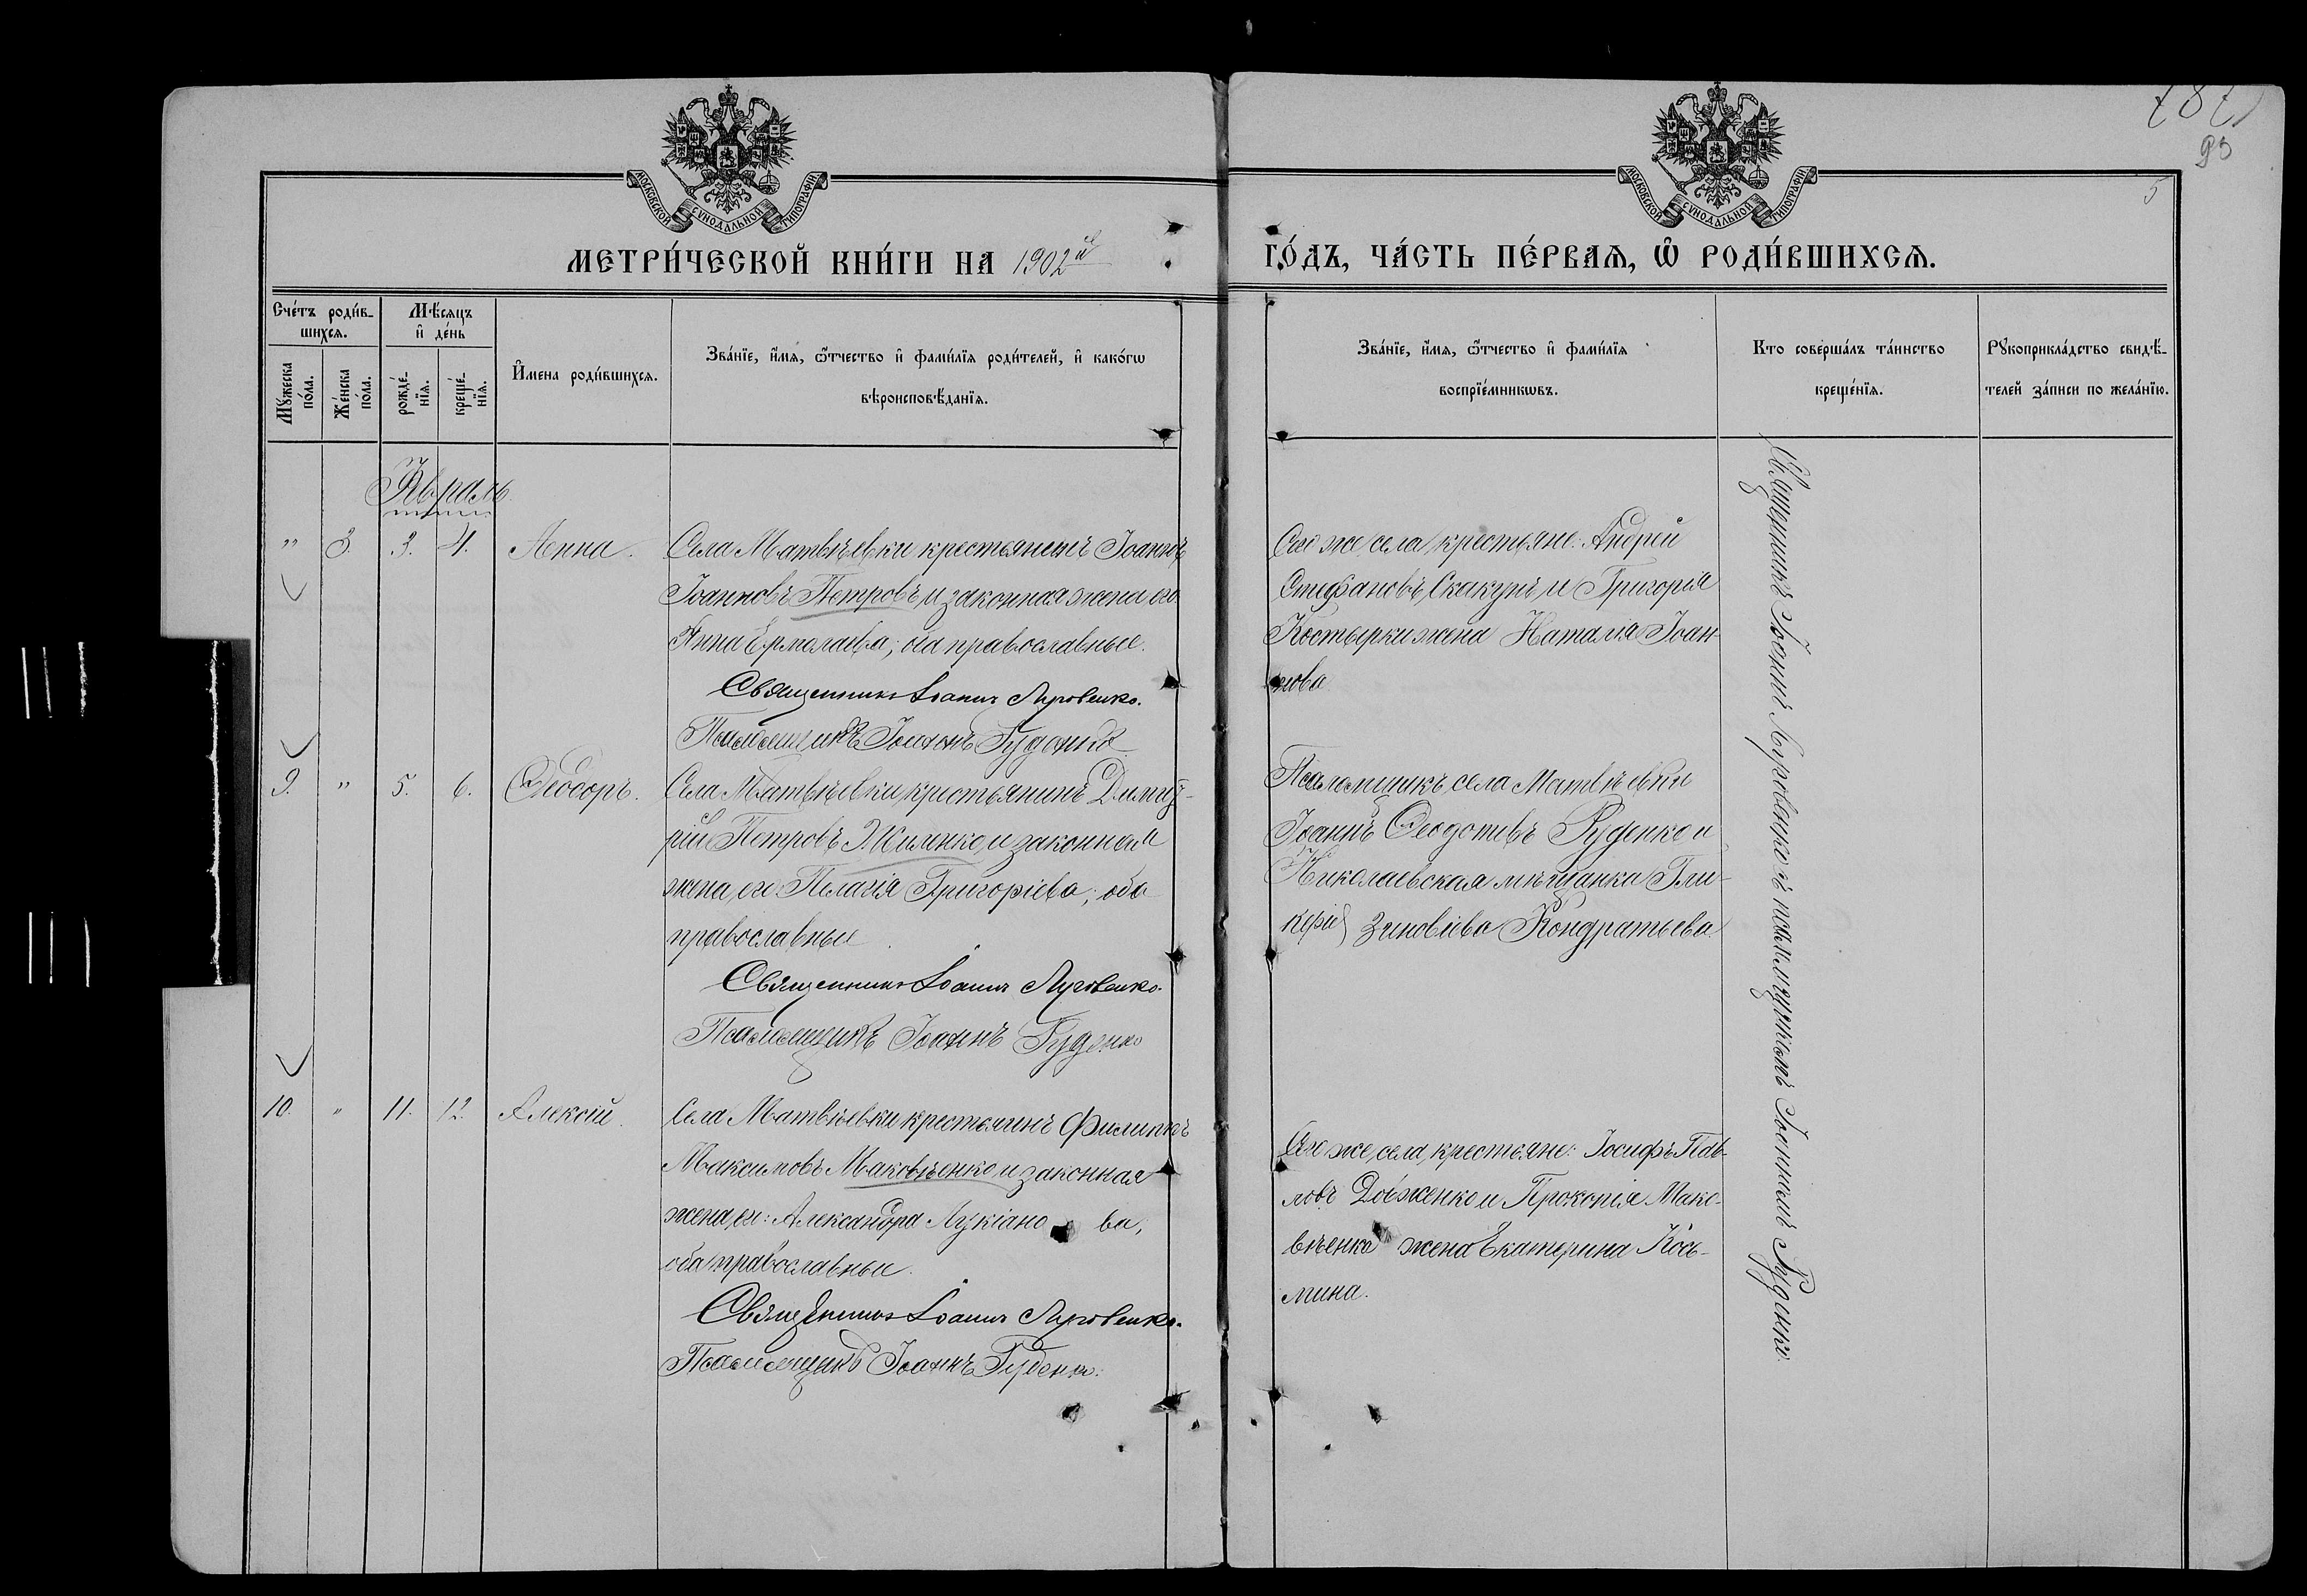 МОСКОВСКОЙ СѴНОДАЛЬНОЙ ТИПОГРАФІИ
МОСКОВСКОЙ СѴНОДАЛЬНОЙ ТИПОГРАФІИ
93
5
МЕТРИ́ЧЕСКОЙ КНИ́ГИ НА 1902й ГО́ДЪ, ЧА́СТЬ ПЕ́РВАѦ, Ѡ РОДИ́ВШИХСѦ.
Сче́тъ роди́в-
шихсѧ.
Мꙋ́жеска
по́ла.
Же́нска
по́ла.
Мѣ́сѧцъ
и҆ де́нь
рожде́-
нїѧ.
креще́-
нїѧ.
И҆́мена роди́вшихсѧ.
Зва́нїе, и҆́мѧ, ѻ҆́тчество и҆ фами́лїѧ роди́телей, и҆ како́гѡ
вѣроисповѣ́данїѧ.
Зва́нїе, и҆́мѧ, ѻ҆́тчество и҆ фами́лїѧ
воспрїе́мникѡвъ.
Кто соверша́лъ та́инство
креще́нїѧ.
Рꙋкоприкла́дство свидѣ́-
телей за́писи по жела́нїю.
Февраль
" 3. 3. 4. Анна.
Села Матвѣевки крестьянинъ Іоаннъ
Іоанновъ Петровъ и законная жена его
Анна Ермолаева; оба православные.
Священникъ Іоаннъ Луговенко.
Псаломщикъ Іоаннъ Руденко
Сего же села крестьяне: Андрей
Стефановъ Скакунъ и Григорія
Костырки жена Наталія Іоан-
нова
9. " 5. 6. Ѳеодоръ.
Села Матвѣевки крестьянинъ Димит-
рій Петровъ Жиленко и законная
жена его Пелагія Григоріева; оба
православные.
Священникъ Іоаннъ Луговенко.
Псаломщикъ Іоаннъ Руденко
Псаломщикъ села Матвѣевки
Іоаннъ Ѳеодотовъ Руденко и
Николаевская мѣщанка Гли-
керія Зиновіева Кондратьева.
10. " 11. 12. Алексій.
Села Матвѣевки крестьянинъ Филиппъ
Максимовъ Маковѣенко и законная
жена его: Александра Лукіано ва,
оба православные.
Священникъ Іоаннъ Луговенко.
Псаломщикъ Іоаннъ Руденко.
Сего же села крестьяне: Іосифъ Пав-
ловъ Довженко и Прокопія Мако-
вѣенка жена Екатерина Кось-
мина.
Священникъ Іоаннъ Луговенко съ псаломщикомъ Іоанномъ Руденко.